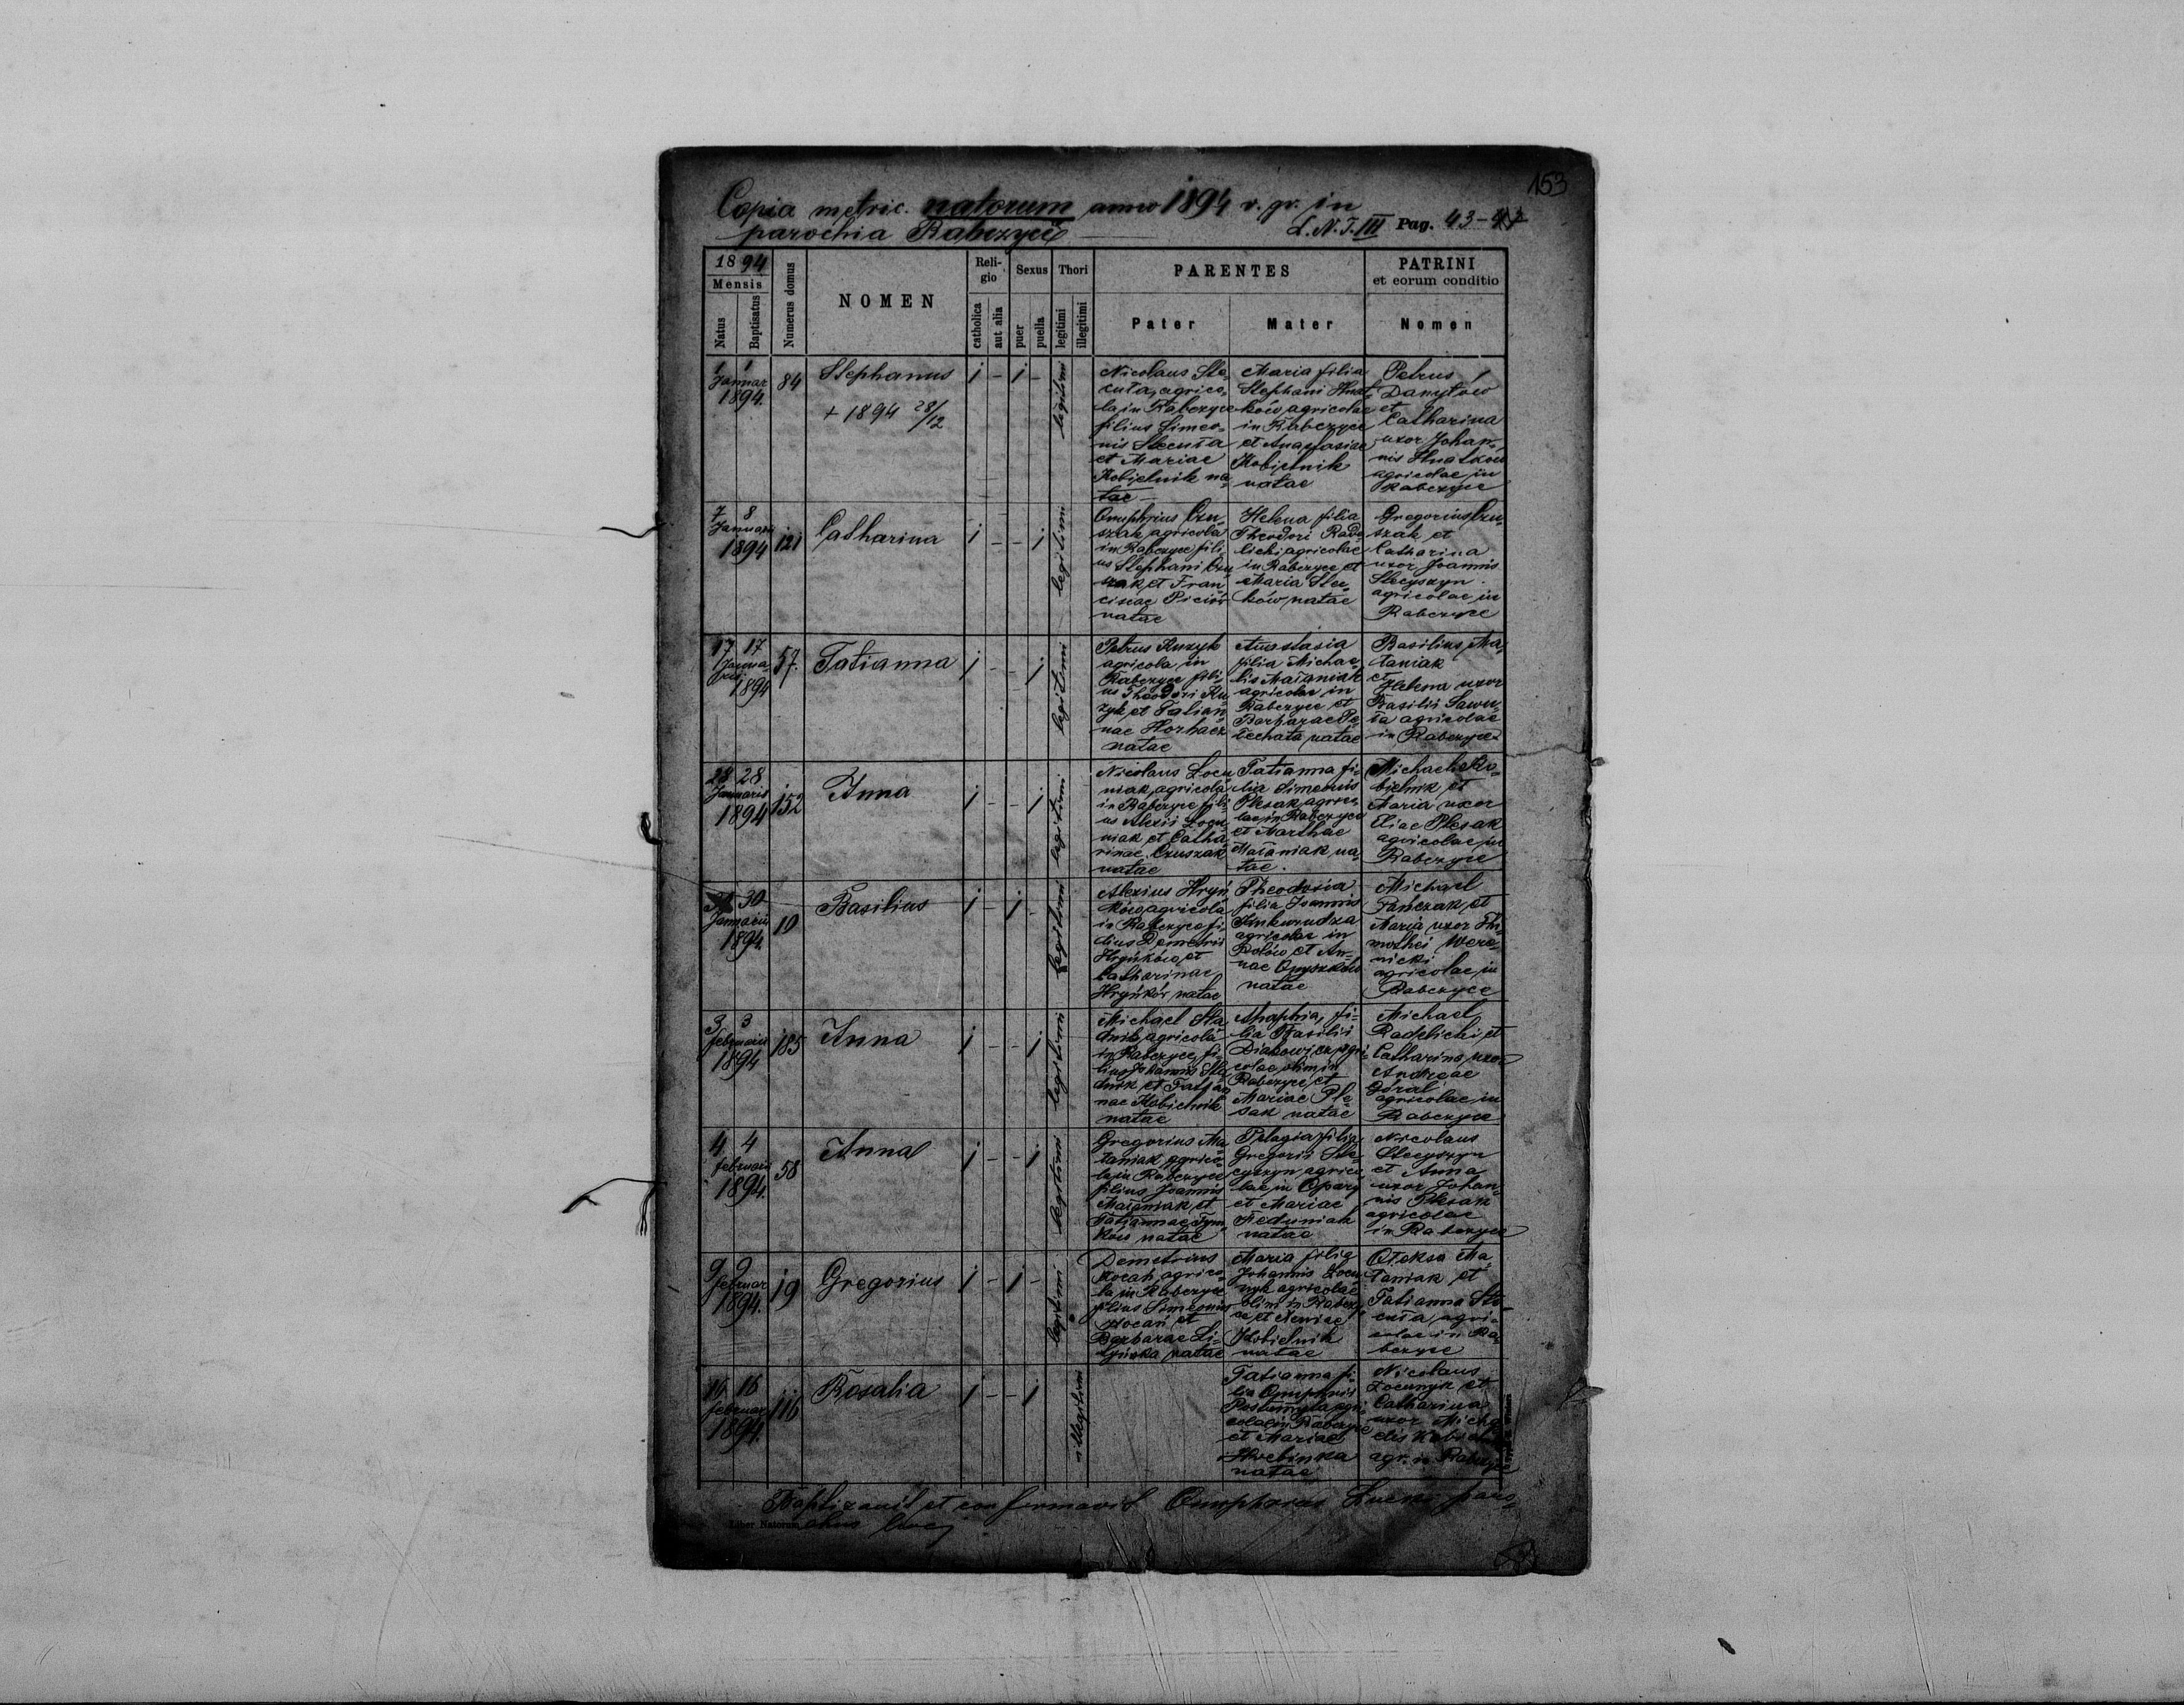 153
Copia metric. natorum anno 1894 r. gr. in
parochia Rabczyce
L. N. T. III Pag. 43-47
1894
Mensis
Natus
Baptisatus
Numerus domus
NOMEN
Religio
catholica
aut alia
Sexus
puer
puella
Thori
legitimi
illegitimi
PARENTES
Pater
Mater
PATRINI
et eorum conditio
Nomen
1 1
Januar
1894.
84
Stephanus
+ 1894 28/12
legitimi
Nicolaus Ste-
cuła, agrico-
la in Rabczyce
filius Simeo-
nis Stecuła
et Mariae
Kobielnik na-
tae
Maria filia
Stephani Hnat-
ków agricolae
in Rabczyce
et Anastasiae
Kobielnik
natae
Petrus
Danyłów
et
Catharina
uxor Johan-
nis Hnatków
agricolae in
Rabczyce
7 8
Januarii
1894
121
Catharina
legitimi
Onuphrius Czu-
szak agricola
in Rabczyce fili-
us Stephani Czu-
szak et Fran-
ciscae
natae
Helena filia
Theodori Rade-
licki agricolae
in Rabczyce et
Maria Stec-
ków natae
Gregorius Czu-
szak et
Catharina
uxor Joannis
Stecyszyn
agricolae in
Rabczyce
17 17
Janua-
rii
1894
57.
Tatianna
legitimi
Petrus Kuzyk
agricola in
Rabczyce fili-
us Theodori Ku-
zyk et Tatian-
nae Horhacz
natae
Anastasia
filia Michae-
lis Małaniak
agricolae in
Rabczyce et
Barbarae Pe-
łechata natae
Basilius Ma-
łaniak
et
Helena uxor
Basilii Sawu-
ła agricolae
in Rabczyce
28 28
Januarii
1894
152
Anna
legitimi
Nicolaus Łocu-
niak agricola
in Rabczyce fili-
us Alexii Łocu-
niak et Catha-
rinae Czuszak
natae
Tatianna fi-
lia Simeonis
Plesak agrico-
lae in Rabczyce
et Marthae
Małaniak na-
tae.
Michael Ko-
bielnik et
Maria uxor
Eliae Plesak
agricolae in
Rabczyce
30
Januarii
1894.
10
Basilius
legitimi
Alexius Hryń-
ków agricola
in Rabczyce fi-
lius Demetrii
Hryńków et
Catharinae
Hryńków natae
Theodosia
filia Joannis
Kukurudza
agricolae in
Rolów et An-
nae
natae
Michael
Panczak et
Maria uxor Thi-
mothei Were-
nicki
agricolae in
Rabczyce
3 3
februarii
1894
185
Anna
legitimi
Michael Sła-
dnik agricola
in Rabczyce fi-
lius Johannis Sła-
dnik et Tatian-
nae Kobielnik
natae
Anaphia, fi-
lia Basilii
Diakowicz agri-
colae olim in
Rabczyce et
Mariae Ple-
sak natae
Michael
Radelicki et
Catharina uxor
Andreae
Góral
agricolae in
Rabczyce
4 4
februarii
1894.
58
Anna
legitimi
Gregorius Ma-
łaniak agrico-
la in Rabczyce
filius Joannis
Małaniak et
Tatiannae Tym-
ków natae
Pelagia filia
Gregorii Ste-
cyszyn agrico-
lae in Opary
et Mariae
Feduniak
natae
Nicolaus
Stecyszyn
et Anna
uxor Johan-
nis Plesak
agricolae
in Rabczyce
9 9
februar
1894.
19
Gregorius
legitimi
Demetrius
Kocan agrico-
la in Rabczyce
filius Simeonis
Kocan et
Barbarae Li-
tyńska natae
Maria filia
Johannis Łocu-
nyk agricolae
olim in Rabczy-
ce et Xeniae
Kobielnik
natae
Ołeksa Ma-
łaniak et
Tatianna Ste-
cuła agri-
colae in Ra-
bczyce
16 16
februar
1894.
116
Rosalia
illegitimi
Tatianna fi-
lia Onuphrii
agri-
colae in Rabczyce
et Mariae
Hrebinka
natae
Nicolaus
Łocunyk et
Catharina
uxor Micha-
elis Kobielnik
agr. in Rabczyce
Baptizavit et confirmavit Onuphrius Łucki paro-
chus loci
Liber Natorum